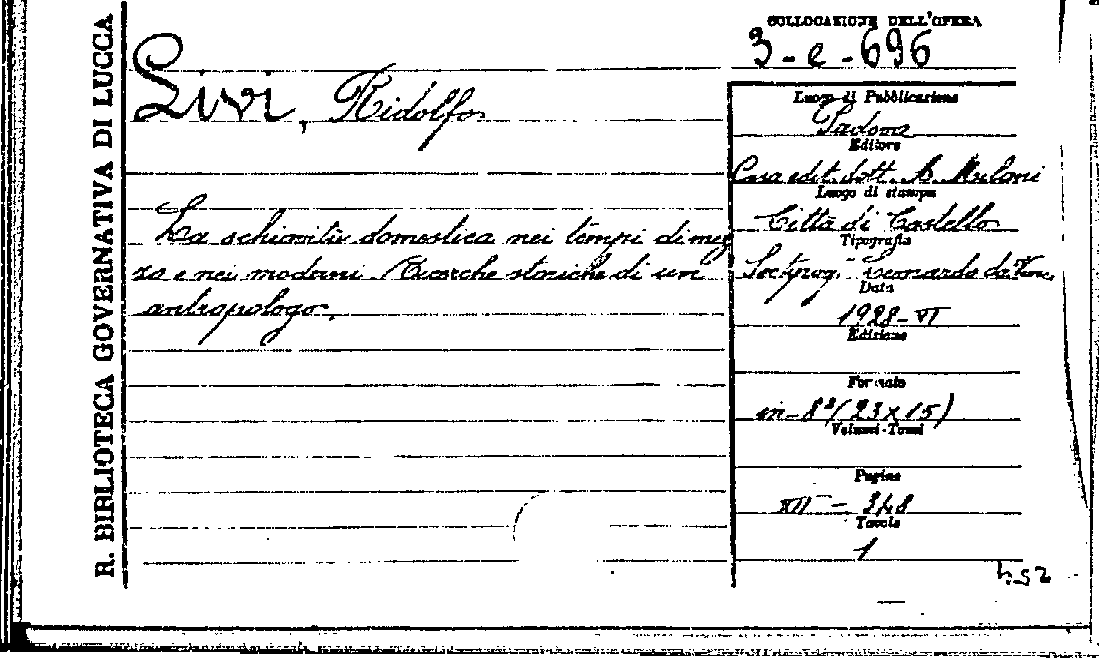 R. BIBLIOTECA GOVERNATIVA DI LUCCA
COLLOCAZIONE DELL'OPERA
3-e-696
Livi, Ridolfo
La schiavitù domestica nei tempi di mez
zo e nei moderni. Ricerche storiche di un
antropologo.
Luogo di Pubblicazione
Padova
Editore
Casa edit. dott. A. Milani
Luogo di stampa
Città di Castello
Tipografia
Soc. tipog. "Leonardo da Vinci
Data
1928-VI
Edizione
Formato
in-8°(23x15)
Volumi-Tomi
Pagine
XII - 348
Tavole
1